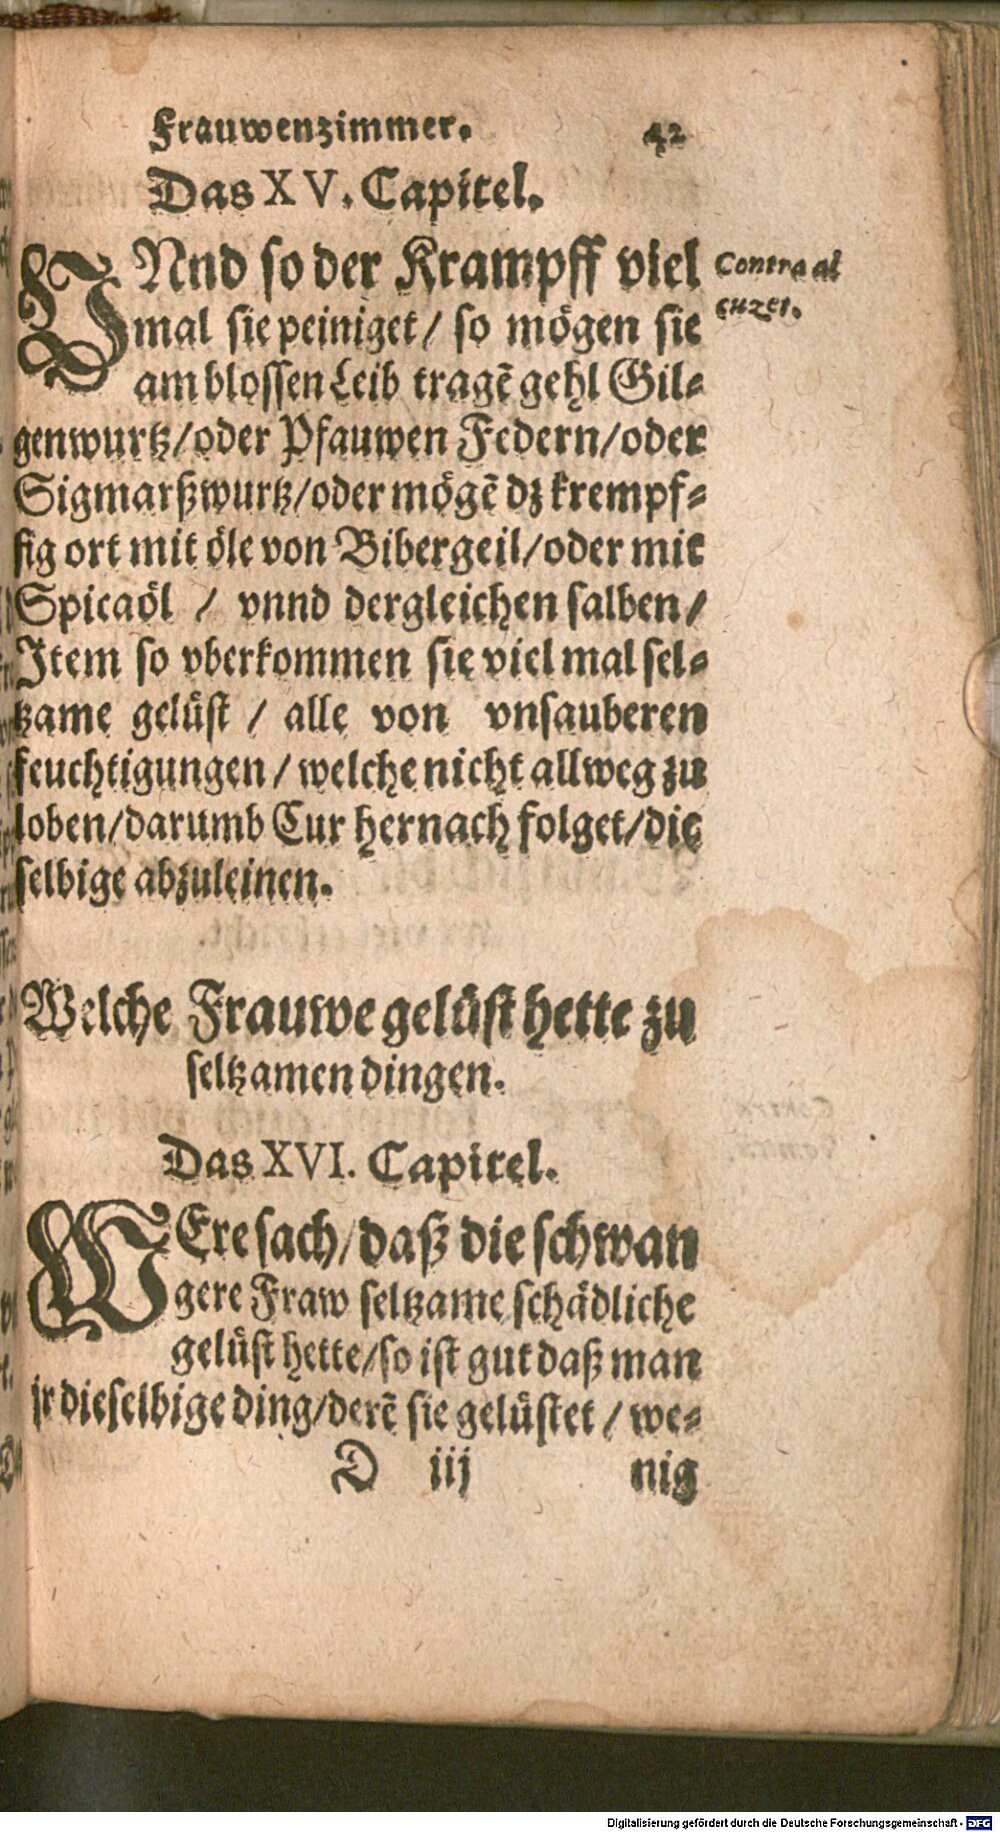 Frauwenzimmer. 42
Das XV. Capitel.
VNnd so der Krampff viel
mal sie peiniget/ so mögen sie
am blossen Leib tragē gehl Gil-
genwurtz/oder Pfauwen Federn/oder
Sigmarßwurtz/oder mögē dz krempf-
fig ort mit öle von Bibergeil/oder mit
Spicaöl / vnnd dergleichen salben/
Item so vberkommen sie viel mal sel-
tzame gelüst / alle von vnsauberen
feuchtigungen/ welche nicht allweg zu
loben/darumb Cur hernach folget/die
selbige abzuleinen.
Contra al
cuzet.
Welche Frauwe gelüst hette zu
seltzamen dingen.
Das XVI. Capitel.
WEre sach/daß die schwan
gere Fraw seltzame schädliche
gelüst hette/so ist gut daß man
jr dieselbige ding/derē sie gelüstet / we-
D iij nig
Digitalisierung gefördert durch die Deutsche Forschungsgemeinschaft - DFG